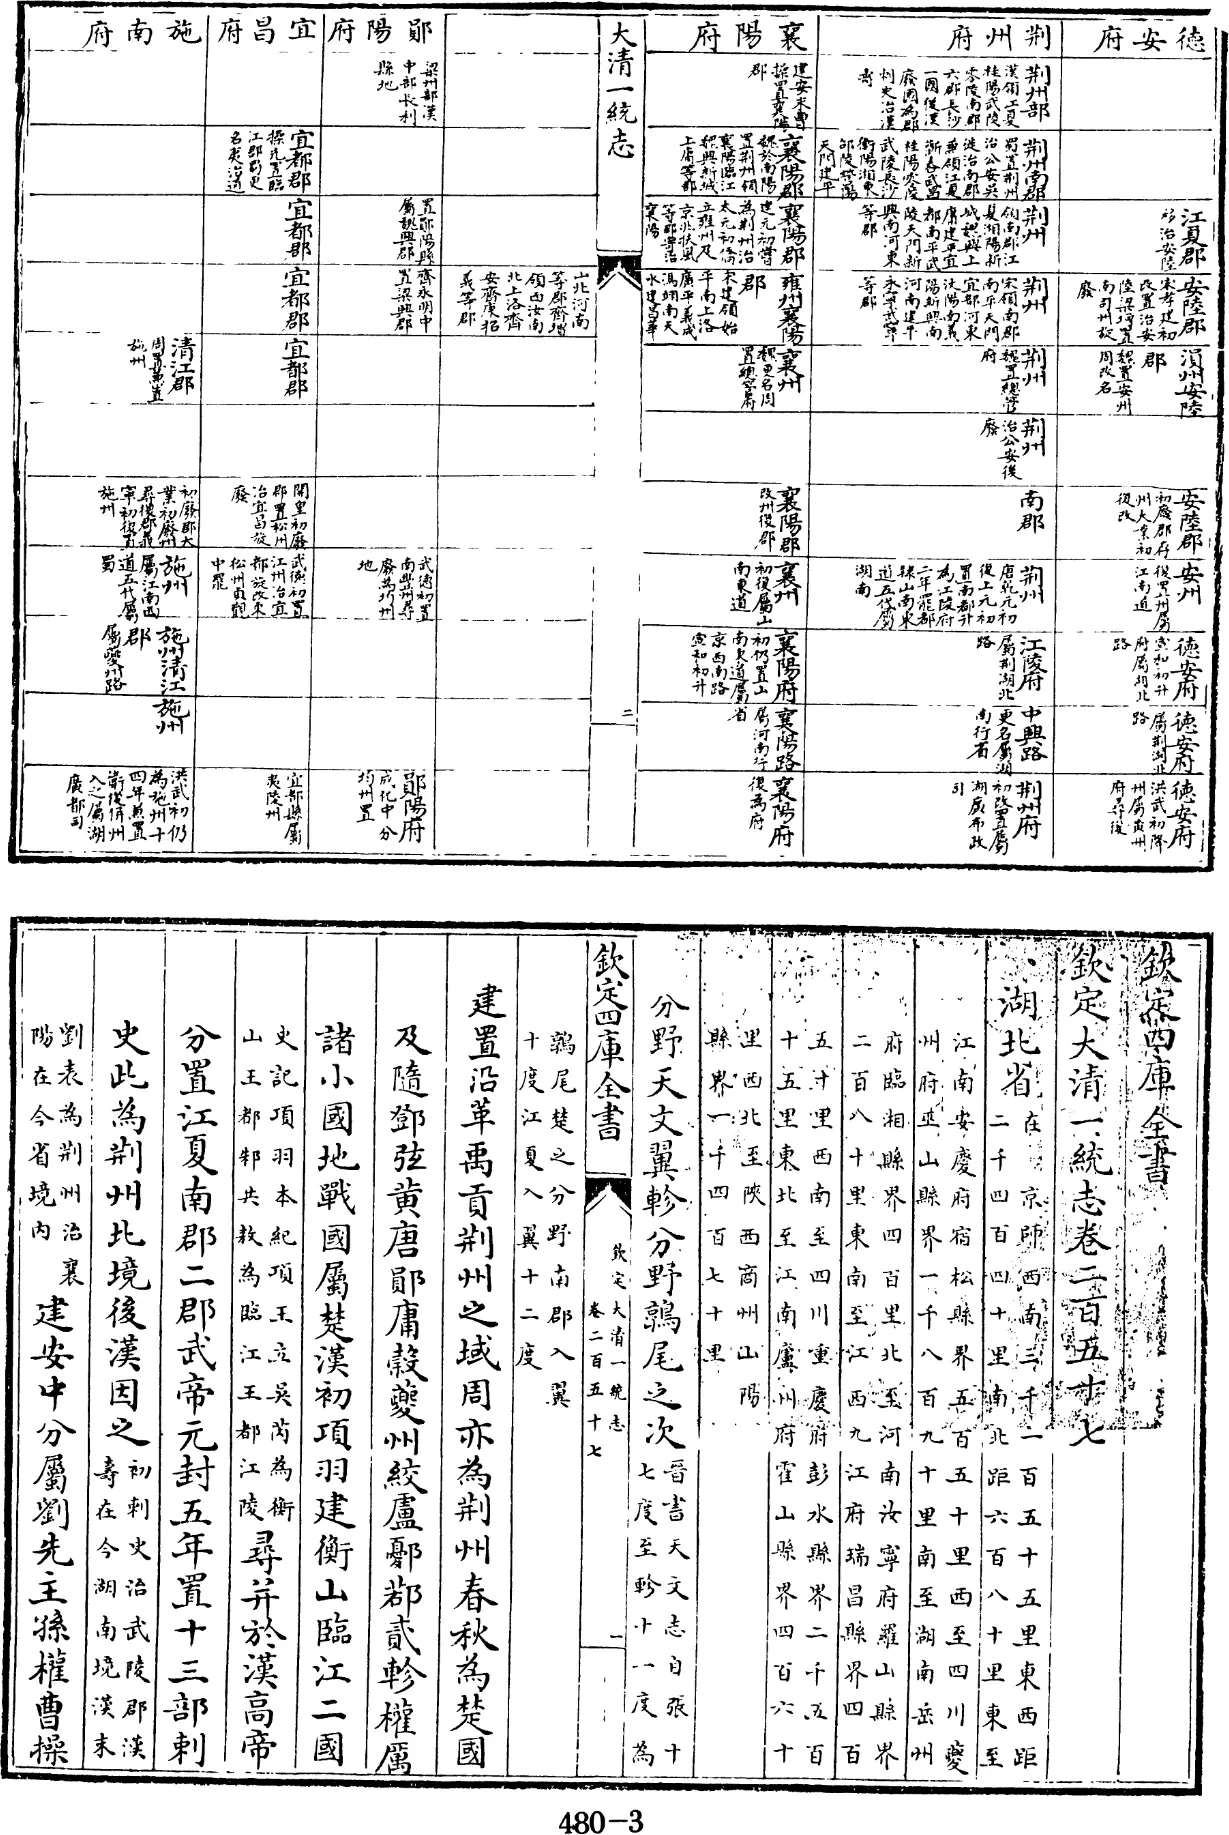 德安府
江夏郡
吳治安陸
安陸郡
宋孝建初
改置治安
陸梁增置
南司州旋
廢
溳州安陸
郡
魏置安州
周改名
安陸郡
初廢郡存
州大業初
復改
安州
復置州屬
江南道
德安府
宣和初升
府屬湖北
路
德安府
屬荆湖北
路
德安府
洪武初降
州屬黃州
府尋復
荆州府
荆州部
漢領江夏
桂陽武陵
零陵南郡
六郡長沙
一國後漢
廢國為郡
刺史治漢
壽
荆州南郡
蜀置荆州
治公安吳
徙治南郡
兼領江夏
蘄春武昌
桂陽零陵
武陵長沙
衡陽湘東
邵陵營陽
天門建平
荆州
領南郡江
夏湘陽新
城魏興上
庸建平宜
都南平武
陵天門新
興南河東
等郡
荆州
宋領南郡
南平天門
宜都河東
汶陽南義
陽新興南
河南建平
永寧武寧
等郡
荆州
魏置總管
府
荆州
治公安後
廢
南郡
荆州
唐乾元初
復上元初
置南都升
為江陵府
二年罷都
隸山南東
道五代屬
湖南
江陵府
屬荆湖北
路
中興路
更名屬湖
南行省
荆州府
初改置屬
湖廣布政
司
襄陽府
建安末曹
操置襄陽
郡
襄陽郡
魏於南陽
置荆州領
襄陽臨江
魏興新城
上庸等郡
襄陽郡
建元初嘗
為荆州治
太元初僑
立雍州及
京兆扶風
等郡並治
襄陽
雍州襄陽
郡
宋建領始
平南上洛
廣平義成
馮翊南天
水建昌華
山北河南
等郡齊增
領西汝南
北上洛齊
安齊康招
義等郡
襄州
魏更名周
置總管府
襄陽郡
改州復郡
襄州
初復屬山
南東道
襄陽府
初仍置山
南東道屬
京西南路
宣和初升
襄陽路
屬河南行
省
襄陽府
復為府
大清一統志
二
鄖陽府
梁州部漢
中部長利
縣地
置鄖陽縣
屬魏興郡
齊永明中
置梁興郡
武德初置
南豐州尋
廢為均州
地
鄖陽府
成化中分
均州置
宜昌府
宜都郡
操先置臨
江郡蜀更
名吳治夷道
宜都郡
宜都郡
宜都郡
開皇初廢
郡置松州
治宜昌旋
廢
武德初置
江州治宜
都旋改東
松州貞觀
中罷
宜都縣屬
夷陵州
施南府
清江郡
周置兼置
施州
初廢郡大
業初廢州
尋復郡義
寧初復置
施州
施州
屬江南西
道五代屬
蜀
施州清江
郡
屬夔州路
施州
洪武初仍
為施州十
四年兼置
衛後併州
入之屬湖
廣都司
欽定四庫全書
欽定大清一統志卷二百五十七
湖北省
在京師西南三千一百五十五里東西距
二千四百四十里南北距六百八十里東至
江南安慶府宿松縣界五百五十里西至四川夔
州府巫山縣界一千八百九十里南至湖南岳州
府臨湘縣界四百里北至河南汝寧府羅山縣界
二百八十里東南至江西九江府瑞昌縣界四百
五十里西南至四川重慶府彭水縣界二千五百
十五里東北至江南廬州府霍山縣界四百六十
里西北至陝西商州山陽
縣界一千四百七十里
分野天文翼軫分野鶉尾之次
晉書天文志自張十
七度至軫十一度為
欽定四庫全書
欽定大清一統志
卷二百五十七
一
鶉尾楚之分野南郡入翼
十度江夏入翼十二度
建置沿革禹貢荆州之域周亦為荆州春秋為楚國
及隨鄧弦黃唐鄖庸穀夔州絞盧鄾鄀貳軫權厲
諸小國地戰國屬楚漢初項羽建衡山臨江二國
史記項羽本紀項王立吳芮為衡
山王都邾共敖為臨江王都江陵
尋并於漢高帝
分置江夏南郡二郡武帝元封五年置十三部刺
史此為荆州北境後漢因之
初刺史治武陵郡漢
壽在今湖南境漢末
劉表為荆州治襄
陽在今省境內
建安中分屬劉先主孫權曹操
480-3